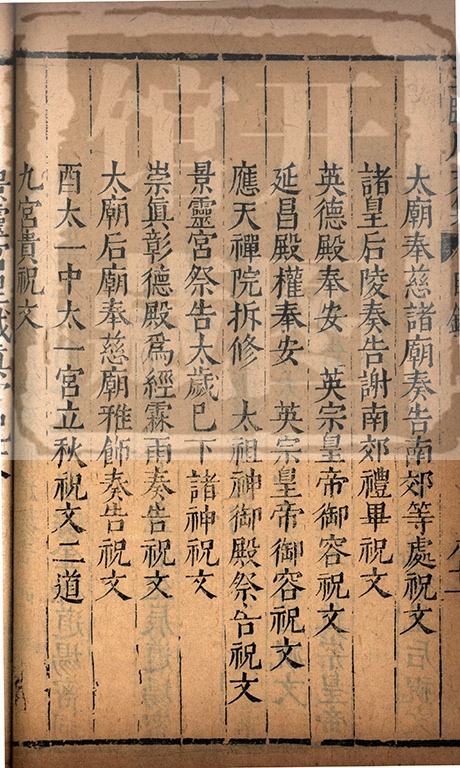 太廟奉慈諸廟奏告南郊等處祝文
諸皇后陵奏告謝南郊禮畢祝文
英德殿奉安 英宗皇帝御容祝文
延昌殿權奉安 英宗皇帝御容祝文
應天禪院拆修 太祖神御殿祭告祝文
景靈宮祭告太歲已下諸神祝文
崇眞彰德殿爲經霖雨奏告祝文
太廟后廟奉慈廟雅飾奏告祝文
酉太一中太一宮立秋祝文二道
九宮貴祝文